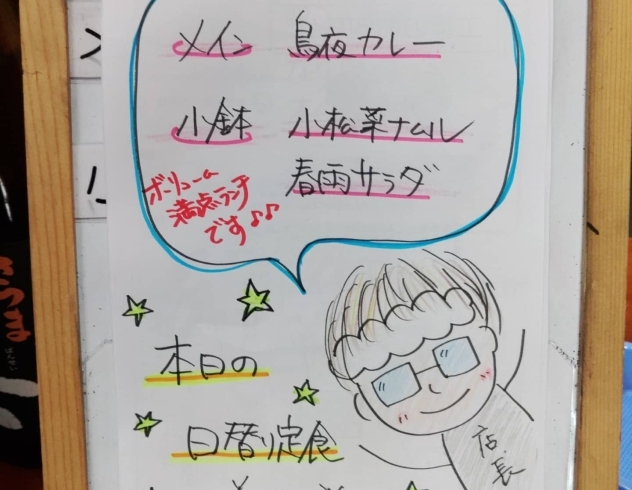 メイン 鳥夜カレー
小鉢 小松菜ナムル
春雨サラダ
ボリューム
満点ランチ
です♪♪
本日の
日替り定食
店長
さつま